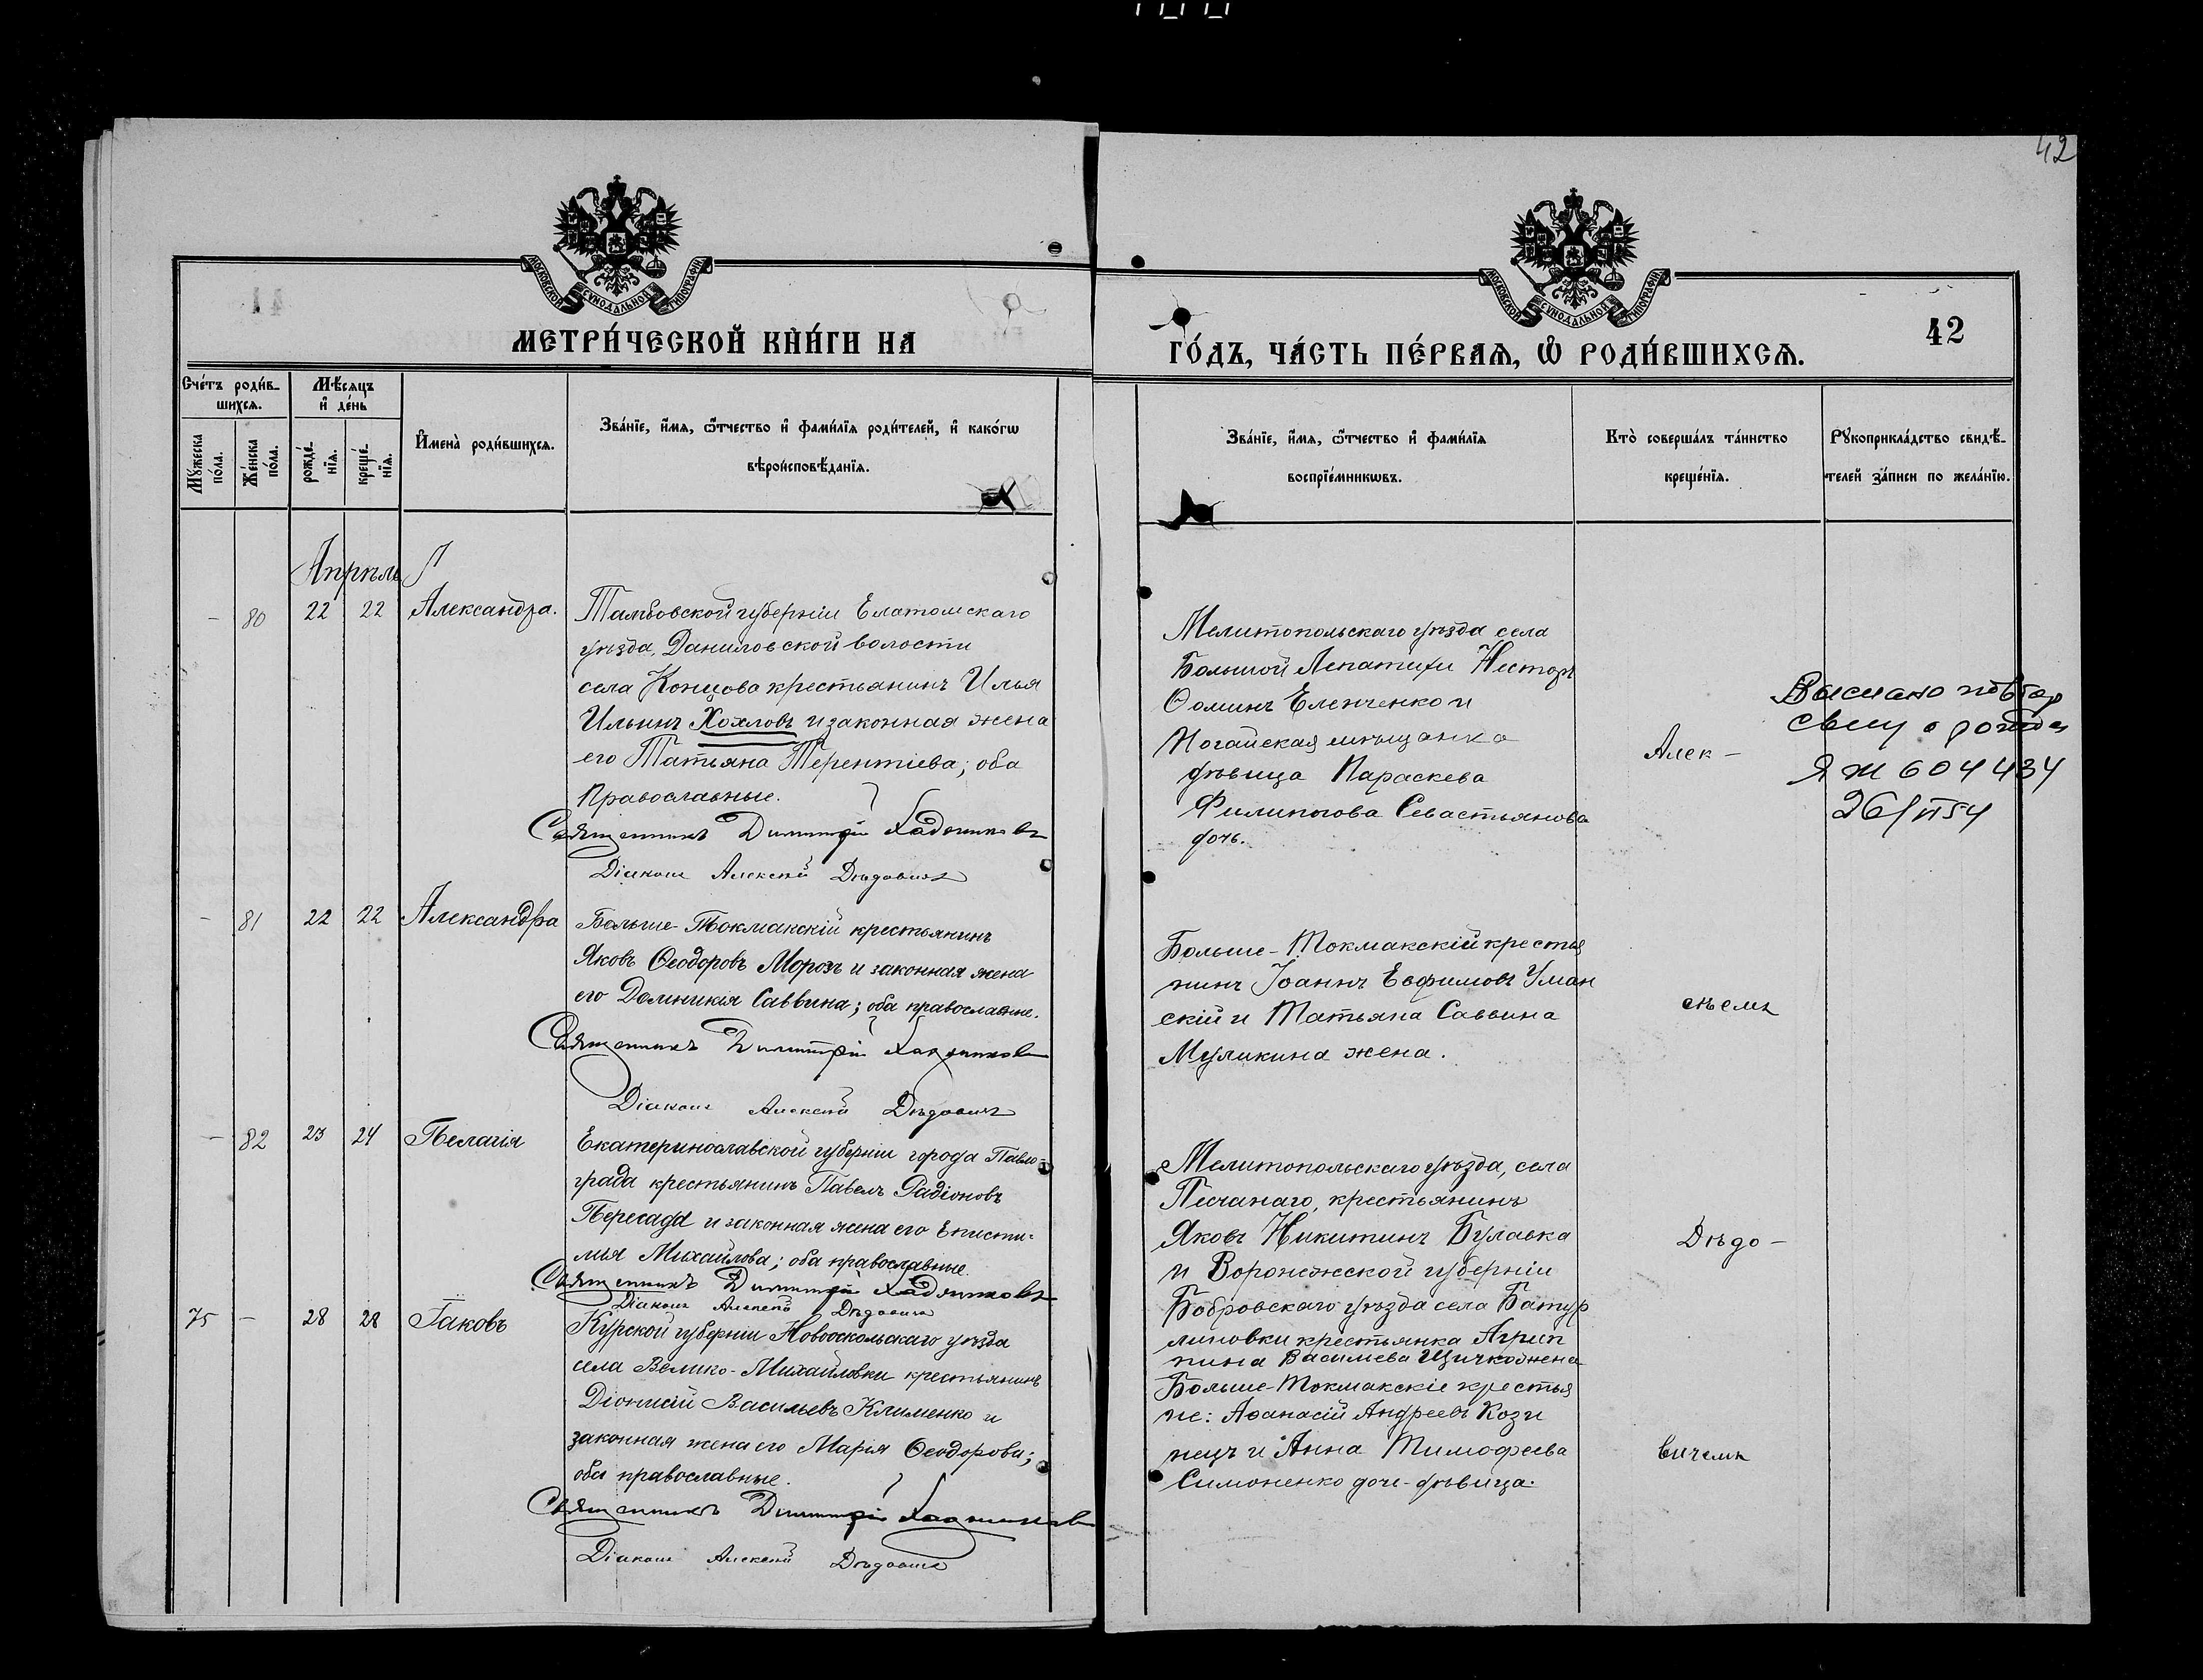 42
МОСКОВСКОЙ СУНОДАЛЬНОЙ ТИПОГРАФІИ
МЕТРИ́ЧЕСКОЙ КНИ́ГИ НА
МОСКОВСКОЙ СУНОДАЛЬНОЙ ТИПОГРАФІИ
ГО́ДЪ, ЧА́СТЬ ПЕ́РВАѦ, Ѡ РОДИ́ВШИХСѦ.
42
Сче́тъ роди́в-
шихсѧ.
Мѣ́сяцъ
и̑ де́нь
Мꙋ́жеска
по́ла.
Же́нска
по́ла.
рожде́-
нїѧ.
креще́-
нїѧ.
И҆мена̀ роди́вшихсѧ.
Зва́нїе, и҆́мѧ, ѻ҆́тчество и҆ фами́лїѧ роди́телей, и҆ како́гѡ
вѣроисповѣ́данїѧ.
Зва́нїе, и҆́мѧ, ѻ҆́тчество и҆ фами́лїѧ
воспрїе́мникѡвъ.
Кто̀ соверша́лъ та́инство
креще́нїѧ.
Рꙋкоприкла́дство свидѣ́-
телей за́писи по жела́нїю.
Апрѣль
- 80 22 22 Александра.
Тамбовской губерніи Елатомскаго
уѣзда, Даниловской волости
села Концова крестьянинъ Илья
Ильинъ Хохловъ и законная жена
его Татьяна Терентіева; оба
Православные.
Священникъ Димитрій
Діаконъ Алексѣй Дѣдовичъ
Мелитопольскаго уѣзда села
Большой Лепатихи Несторъ
Ѳоминъ Еленченко и
Ногайская мѣщанка
дѣвица Параскева
Филиппова Севастьянова
дочь.
Алек-
Выслано повтор
свид о рожд
ЯЖ 604434
26/II 54
- 81 22 22 Александра
Больше-Токмакскій крестьянинъ
Яковъ Ѳеодоровъ Морозъ и законная жена
его Домникія Саввина; оба православные.
Священникъ Димитрій
Діаконъ Алексѣй Дѣдовичъ
Больше-Токмакскій крестья
нинъ Іоаннъ Евфимовъ Уман
скій и Татьяна Саввина
Муликина жена.
сѣемъ
- 82 23 24 Пелагія
Екатеринославской губерніи города Павло-
града крестьянинъ Павелъ Радіоновъ
Пересада и законная жена его Еписти-
мія Михайлова; оба православные
Священникъ Димитрій
Діаконъ Алексѣй Дѣдовичъ
Мелитопольскаго уѣзда, села
Песчанаго, крестьянинъ
Яковъ Никитинъ Булавка
и Воронежской губерніи
Бобровскаго уѣзда села Батур
линовки крестьянка Агрип
пина Васильева жена
Дѣдо-
75 - 28 28 Іаковъ
Курской губерніи Новооскольскаго уѣзда
села Велико-Михайловки крестьянинъ
Діонисій Васильевъ Клименко и
законная жена его Марія Ѳеодорова;
оба православные.
Священникъ Димитрій
Діаконъ Алексѣй Дѣдовичъ
Больше-Токмакскіе крестья
не: Аѳанасій Андреевъ Кози
нецъ и Анна Тимофеева
Симоненко дочь-дѣвица.
вичемъ